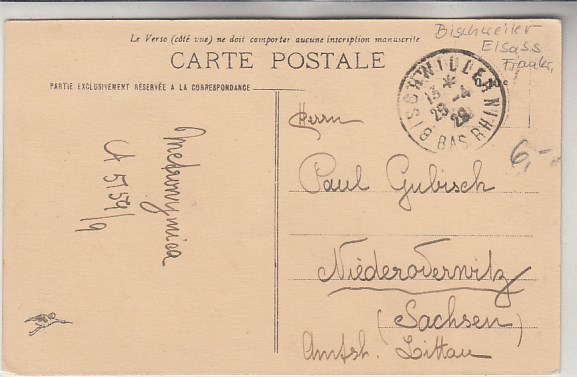 Le Verso (côté vue) ne doit comporter aucune inscription manuscrite
CARTE POSTALE
PARTIE EXCLUSIVEMENT RÉSERVÉE A LA CORRESPONDANCE
Bischweiler
Elsass
BISCHWILLER
13 *
29 -4
29
BAS RHIN
6,-
Herrn
Paul Gubisch
Niederoderwitz
(Sachsen)
Amtsh. Zittau
Metronymica
A 5159/9